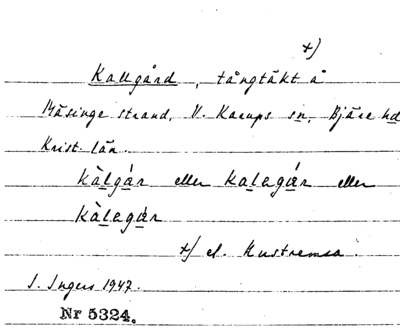 x)
Kallgård, tångtäkt å
Påsinge strand, V. Karups sn, Bjäre hd
Krist. län.
kàlgár eller kalagár eller
kàlagár
x) el. Hustremsa.
I. Ingers 1947.
Nr 5324.